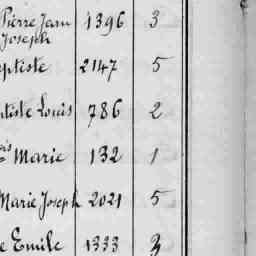 Pierre Jean 1396 3
Joseph
ptiste 2147 5
ptiste Louis 786 2
is Marie 132 1
Marie Joseph 2021 5
e Emile 1333 3